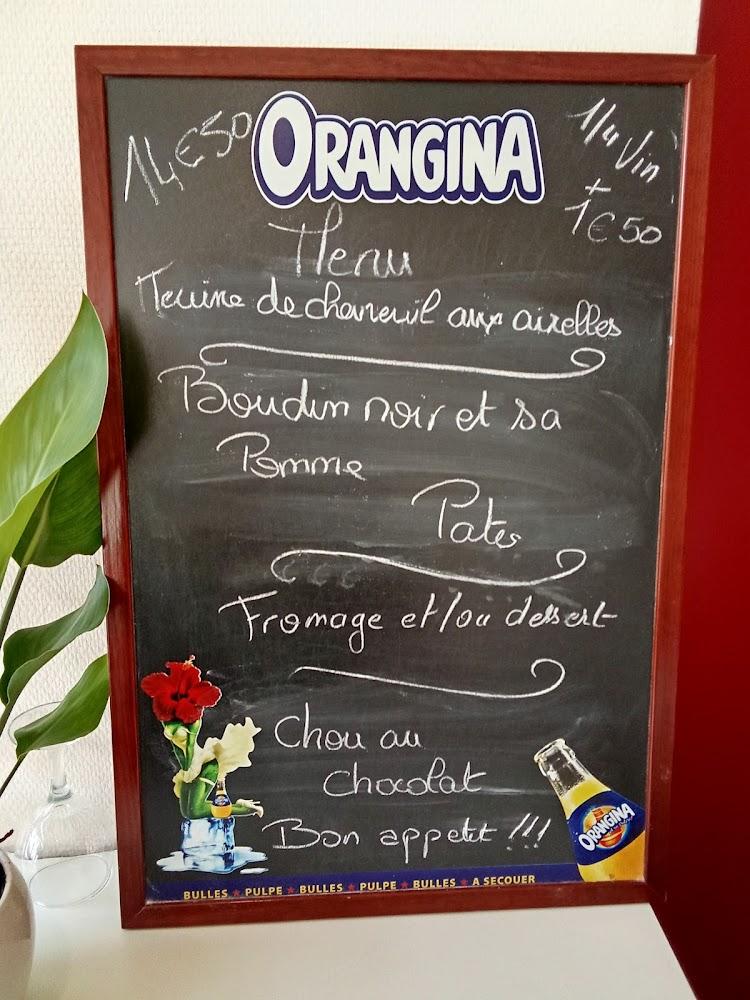 14€50
ORANGINA
1/4 Vin
+
1€50
Menu
Terrine de chevreuil aux airelles
Boudin noir et sa
Pomme
Pates
Fromage et/ou dessert
Chou au
chocolat
Bon appetit !!!
ORANGINA
BULLES ★ PULPE ★ BULLES ★ PULPE ★ BULLES ★ A SECOUER